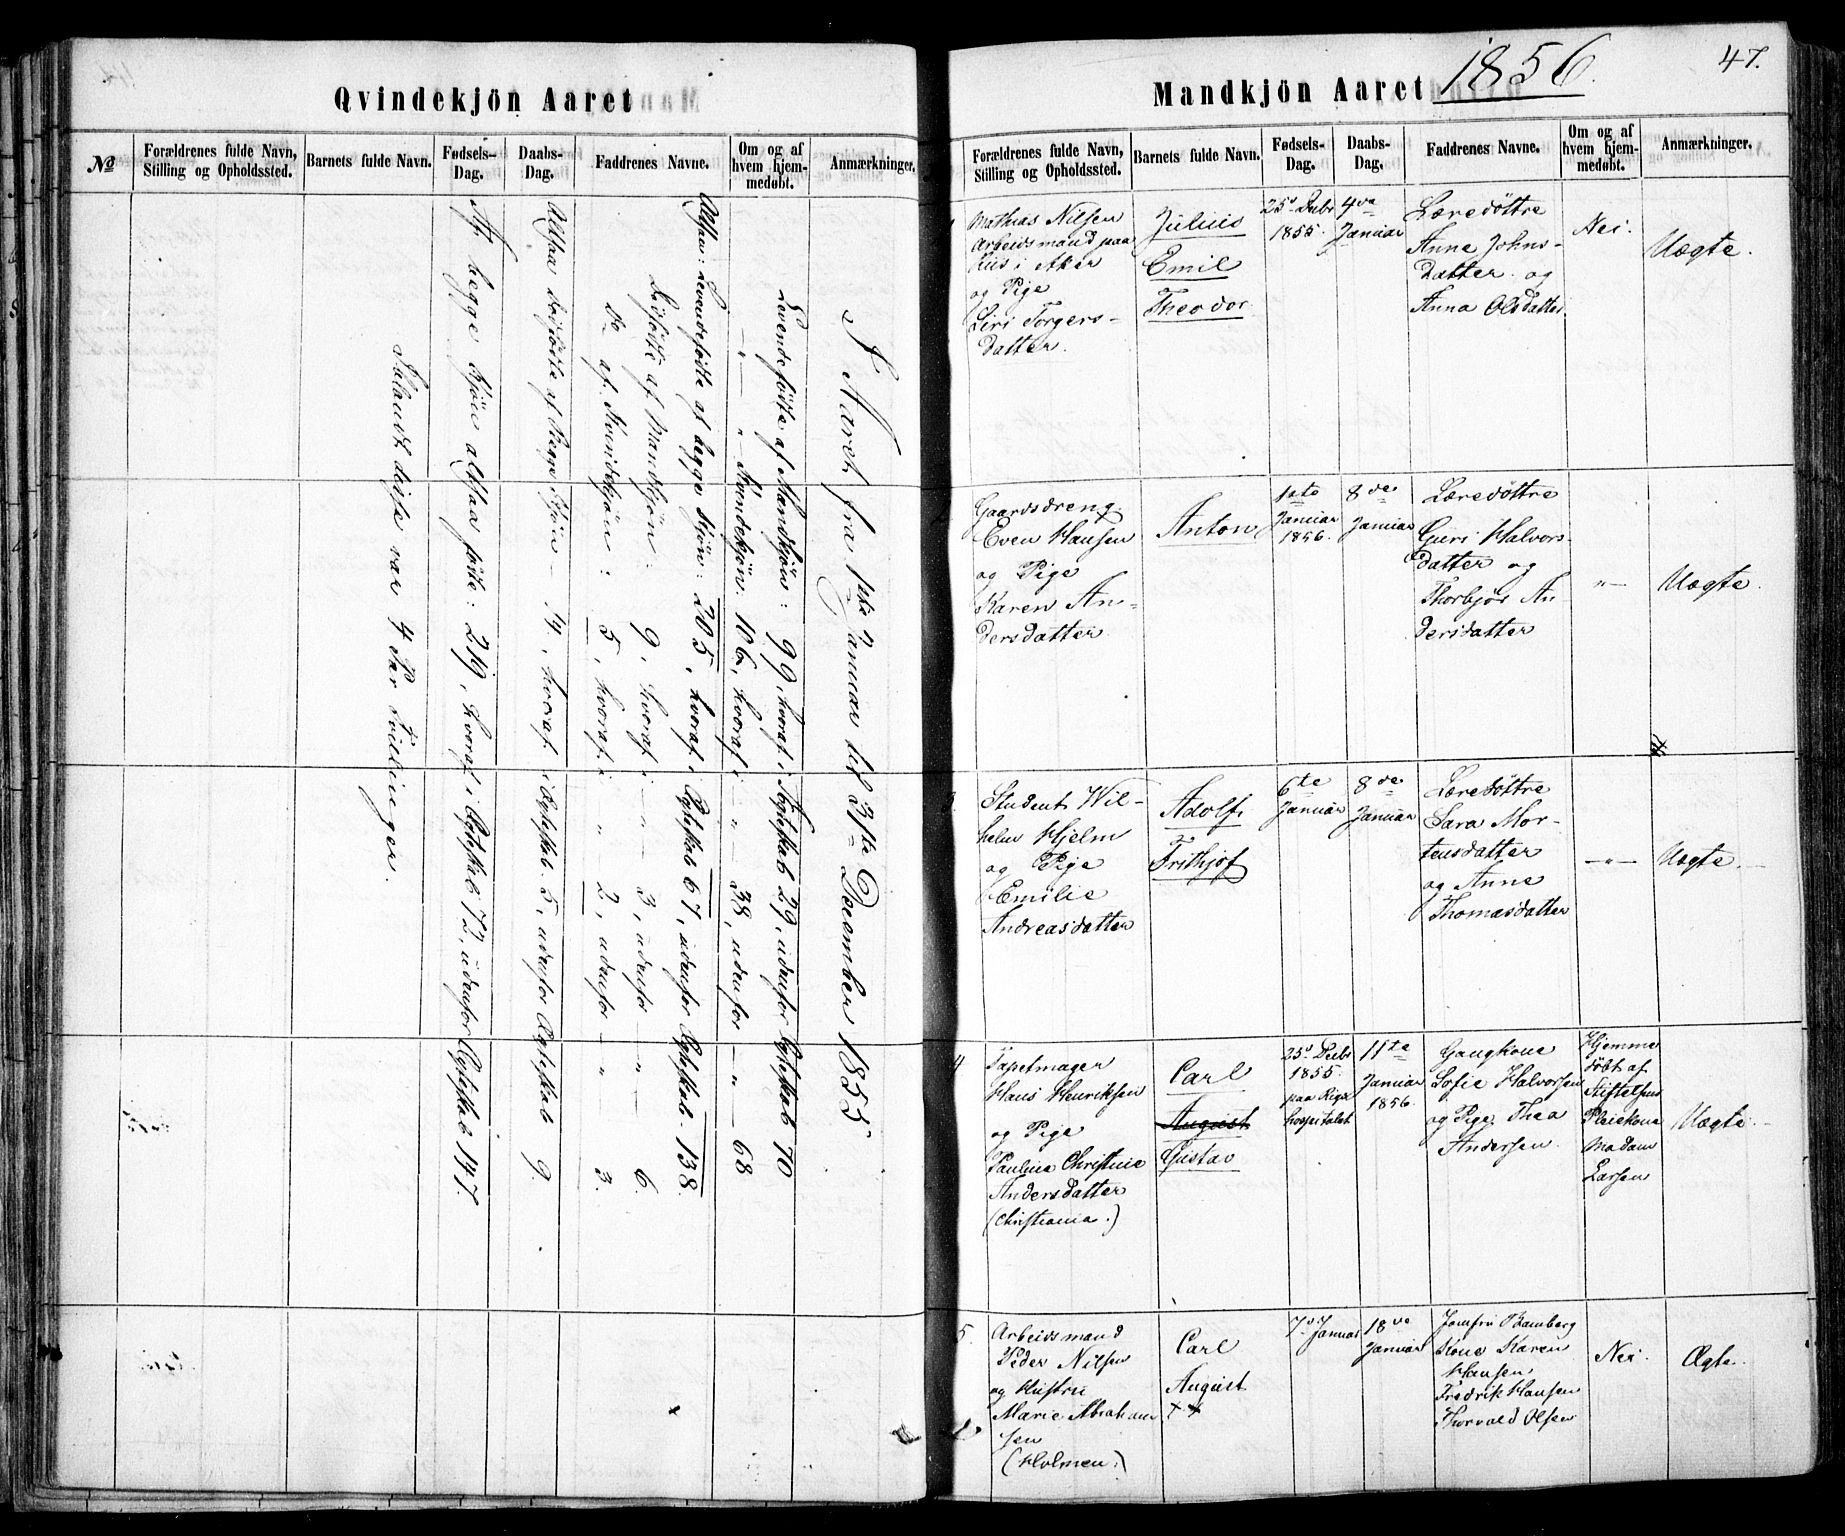 Qvindekjön Aaret
№
Forældrenes fulde Navn, Stilling og Opholdssted.
Barnets fulde Navn.
Fødsels-Dag.
Daabs-Dag.
Faddrenes Navne.
Om og af hvem hjem-medøbt.
Anmærkninger.
I Aaret fra 1ste Januar til 31te December 1855
Levendefödte af Mandkjön: 99, hvoraf i Ægteskab 29, udenfor Ægteskab 70
—"— " Kvindekjön: 106, hvoraf " " 38, udenfor — " — 68
Altsaa: Levendefödte af begge Kjön: 205, hvoraf i Ægteskab 67, udenfor Ægteskab. 138.
Dødfödte af Mandkjön: 9, hvoraf " — 3, udenfor — " — 6
do af Kvindekjön: 5, hvoraf " — 2, udenfor — " 3.
Altsaa dødfödte af Begge Kjön — 14, hvoraf i Ægteskab 5, udenfor Ægteskab 9.
Af begge Kjön altsaa födte: 219, hvoraf i Ægteskab 72, udenfor Ægteskab 147.
Iblandt disse var 4 Par Tvillinger.
Mandkjön Aaret 1856.
47.
Forældrenes fulde Navn, Stilling og Opholdssted.
Barnets fulde Navn.
Fødsels-Dag.
Daabs-Dag.
Faddrenes Navne.
Om og af hvem hjem-medøbt.
Anmærkninger.
1
Mathias Nilsen
Arbeidsmand paa
Riis i Aker
og Pige
Siri Torgers-
datter.
Julius
Emil
Theodor
25d Decbr
1855.
4de
Januar
Læredøttre
Anne Johns-
datter og
Anna Olsdatter
Nei.
Uægte.
Gaardsdreng
Even Hansen
og Pige
Karen An-
dersdatter
Anton
1ste
Januar
1856.
8de
Januar
Læredøttre
Guri Halvors-
datter og
Thorbjør An
dersdatter
"—
Uægte.
3.
Student Wil-
helm Hjelm
og Pige
Emilie
Andreasdatter
Adolf
Frithjof
6te
Januar
8de
Januar
Læredøttre
Sara Mor-
tensdatter
og Anne
Thomasdatter
—"—
Uægte.
4
Tapetmager
Hans Henriksen
og Pige
Pauline Christine
Andersdatter
(Christiania.)
Carl
August
Gustav
25d Decbr
1855.
paa Rigs
hospitalet
11te
Januar
1856.
Gangkone
Sofie Halvorsen
og Pige Thea
Andersen.
Hjemme
døbt af
Stiftelsens
Pleiekone
Madam
Larsen
Uægte.
5.
Arbeidsmand
Peder Nilsen
og Hustru
Marie Abraham
sen
(Holmen.)
Carl
August
7d Januar
18de
Januar
Jomfru Bamberg
Kone Karen
Hansen
Fredrik Hansen
Thorvald Olsen
Nei.
Ægte.